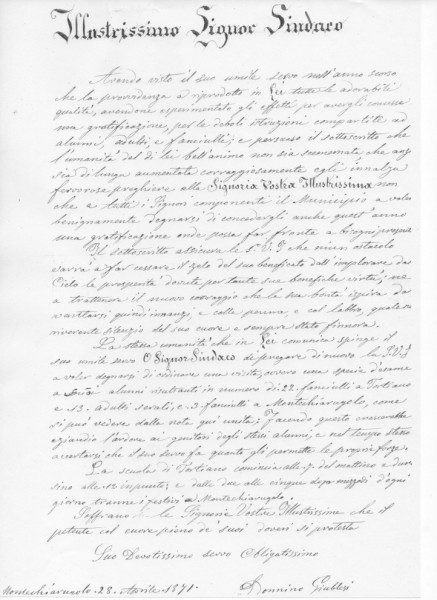 Illustrissimo Signor Sindaco
Avendo visto il suo umile servo nell'anno scorso
che la provvidenza a riprodotto in Lei tutte le adorabili
qualità, avendone esperimentato gli effetti per avergli concessa
una gratificazione, per le deboli istruzioni compartite ad
alunni, adulti e fanciulli; e persuaso il sottoscritto che
l'umanità del di lei bell'animo non sia scemata che anzi
sia di lunga aumentata coraggiosamente egli innalza
fervorose preghiere alla Signoria Vostra Illustrissima non
che a tutti i Signori componenti il Municipio a voler
benignamente degnarsi di concedergli anche quest'anno
una gratificazione onde possa far fronte a bisogni
Il sottoscritto assicura la S. V. I. che niun ostacolo
varrà a far cessare il zelo del suo beneficato dall'implorare dal
Cielo le prosperità dovute per tante sue benefiche virtù; ne
a trattenere il nuovo coraggio che la sua bontà spira da
quindi innanzi, e colla penna, e col labbro, quale
riverente silenzio del suo cuore e sempre stato finora.
La stessa umanità che in Lei comunica spinge il
suo umile servo O Signor Sindaco di pregare di nuovo la S.V.I.
a voler degnarsi di ordinare una visita, ovvero una specie d'esame
a suoi alunni risultanti in numero di 22 fanciulli a Tortiano
e 13 adulti serali, e 3 fanciulli a Montechiarugolo, come
si può vedere dalla nota qui unita: Facendo questo crescerebbe
eziandio l'ardore ai genitori degli stessi alunni, e nel tempo stesso
accertarsi che il suo servo fa quanto gli permette le proprie forze.
La scuola di Tortiano comincia alle 7 del mattino e dura
sino alle 12 in punto; e dalle due alle cinque dopo mezzodì d'ogni
giorno tranne i festivi a Montechiarugolo.
Soffrano le Signorie Vostre Illustrissime che il
petente col cuore pieno de' suoi doveri si protesta
Suo Devotissimo servo Obligatissimo
Montechiarugolo 28 Aprile 1871. Donnino